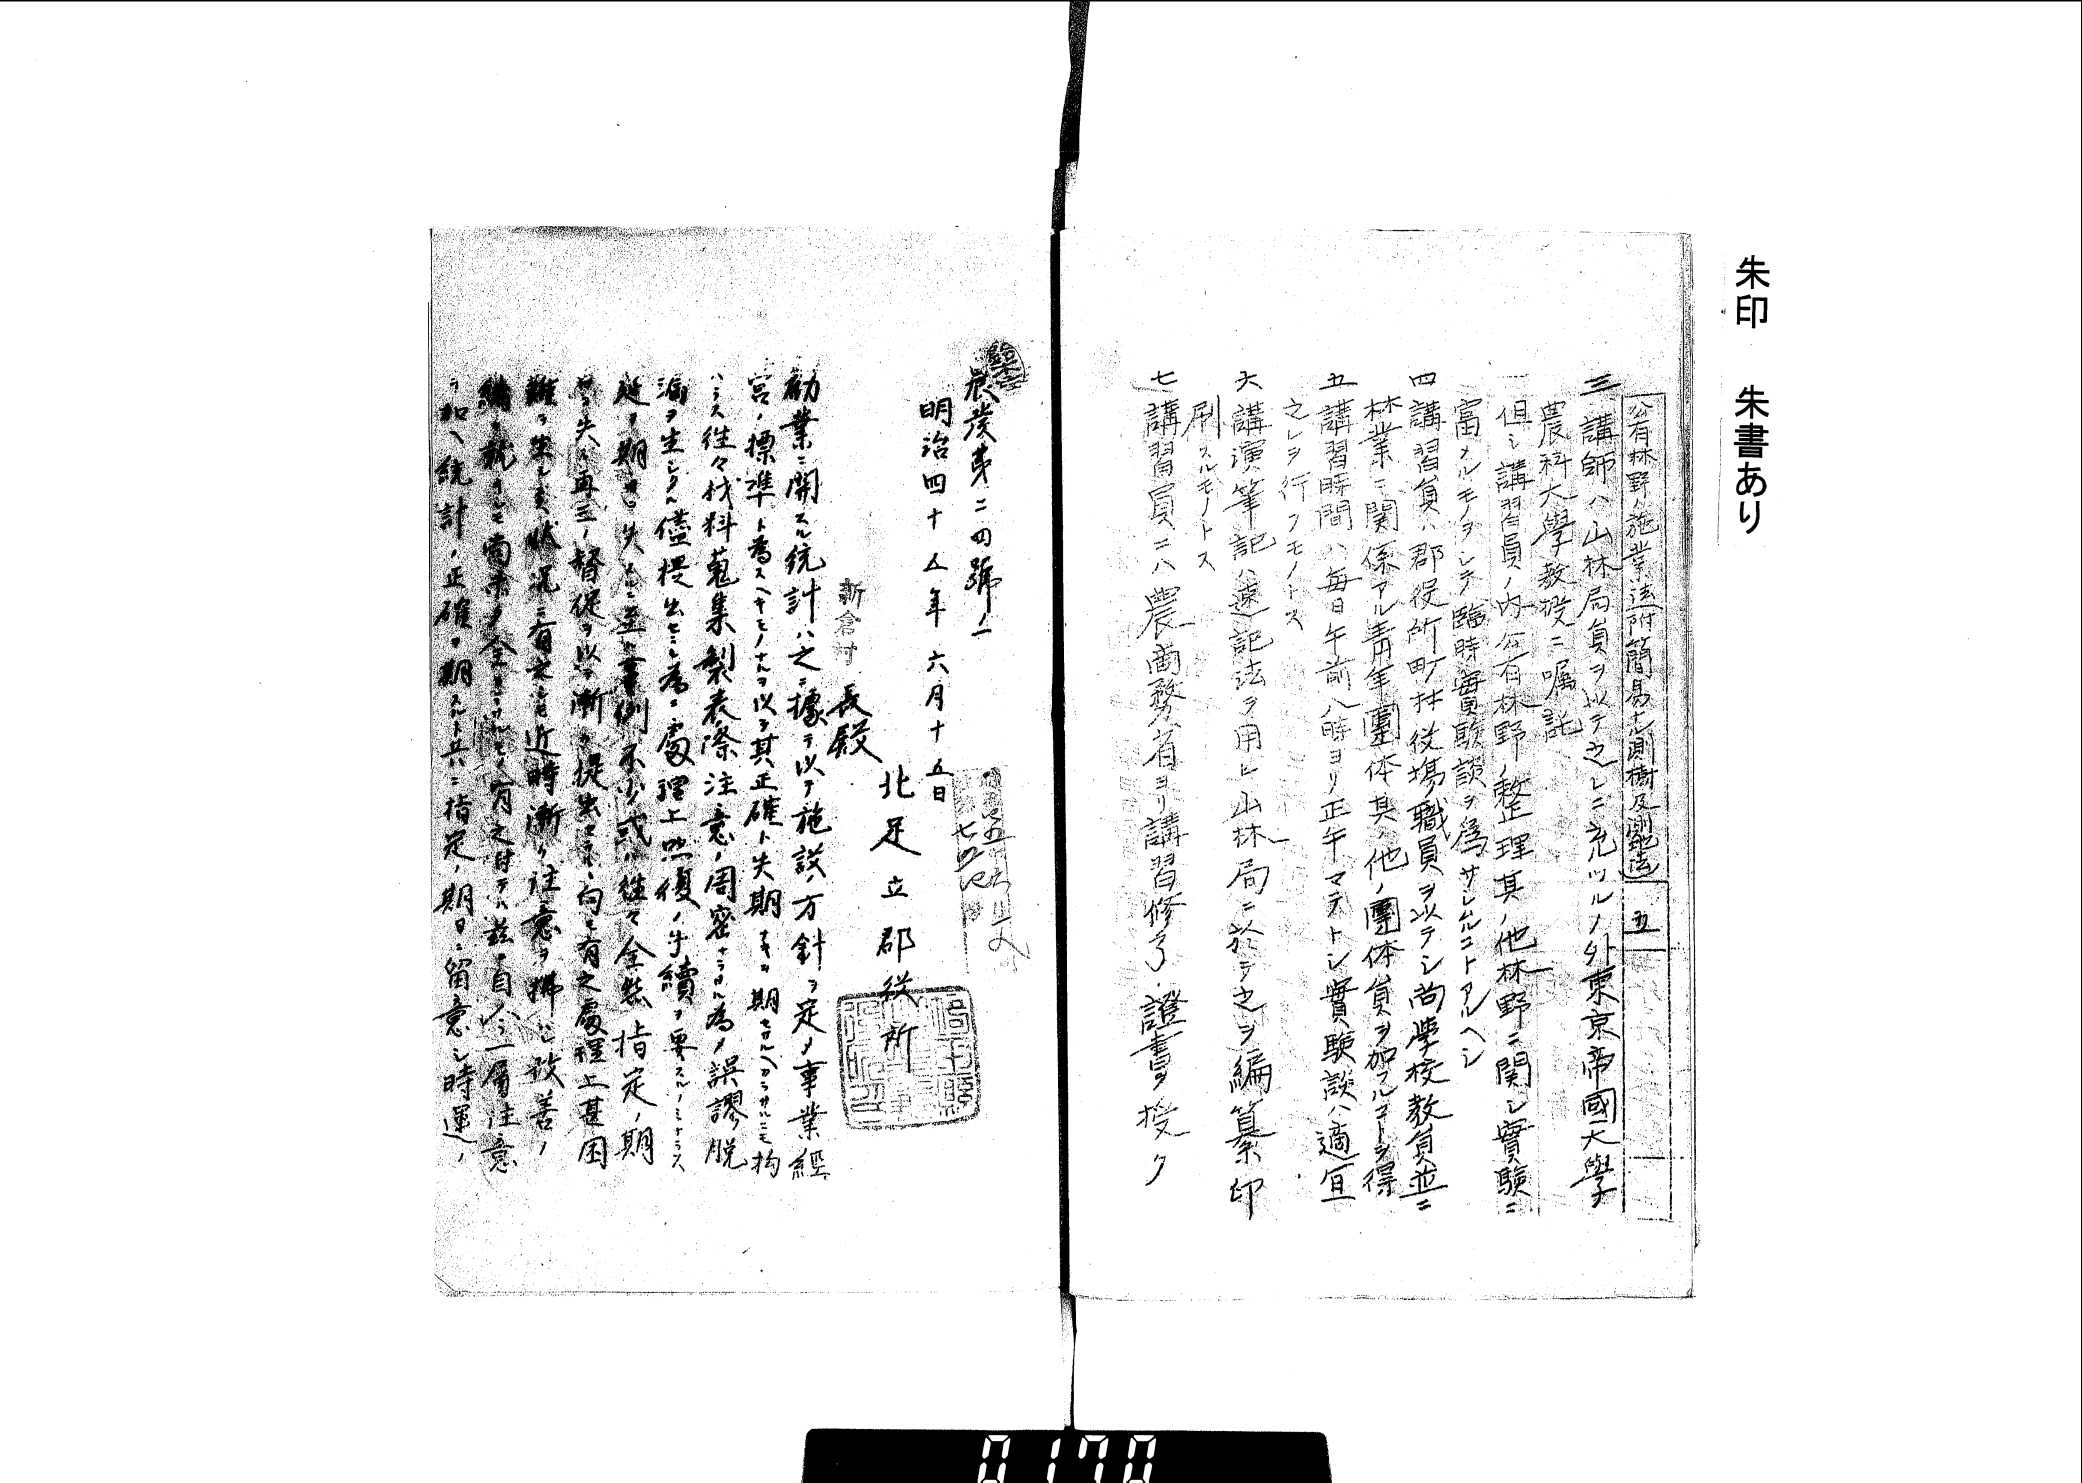 朱印 朱書あり
公有林野ノ施業法附簡易ナル測樹及測地法
五
三 講師ハ山林局員ヲ以テ之レニ充ツルノ外東京帝國大學
農科大學教授ニ嘱託
但シ講習員ノ内公有林野ノ整理其ノ他林野ニ関シ實験ニ
富メルモノヲシテ臨時實験談ヲ為サシムルコトアルヘシ
四 講習員ハ郡役所町村役場職員ヲ以テシ尚学校教員並ニ
林業ニ関係アル青年團体其ノ他ノ團体員ヲ加フルコトヲ得
五 講習時間ハ毎日午前八時ヨリ正午マテトシ實験談ハ適宜
之レヲ行フモノトス
六 講演筆記ハ速記法ヲ用ヒ山林局ニ於テ之ヲ編纂印
刷スルモノトス
七 講習員ニハ農商務省ヨリ講習修了證書ヲ授ク
農発第二四號ノ一
明治四十五年六月十五日
北足立郡役所
新倉村長殿
勧業ニ関スル統計ハ之ニ據テ以テ施設ノ方針ヲ定メ事業経
営ノ標準ト為スヘキモノナルヲ以テ其正確ト失期ナキヲ期セサルヘカラサルニモ拘
ハラス往々材料蒐集製表際注意ノ周密ナラサル為メ誤謬脱
漏ヲ生シタル儘提出セシ為ニ處理上照復ノ手續ヲ要スルノミナラス
定ノ期日ヲ失スルニ至ル事例不少或ハ往々全然指定ノ期
日ヲ失ヘ再三ノ督促ヲ以テ漸ク提出セラルヽ向モ有之處理上甚困
難ヲ生シ状況ニ有之近時漸ク注意ヲ拂ヒ改善ノ
緒ニ就キシモ尚未タ全カラサルモノ有之付テハ茲ニ自今一層注意
ヲ加ヘ統計ノ正確ヲ期スルト共ニ指定ノ期日ニ留意シ時運ノ
0170